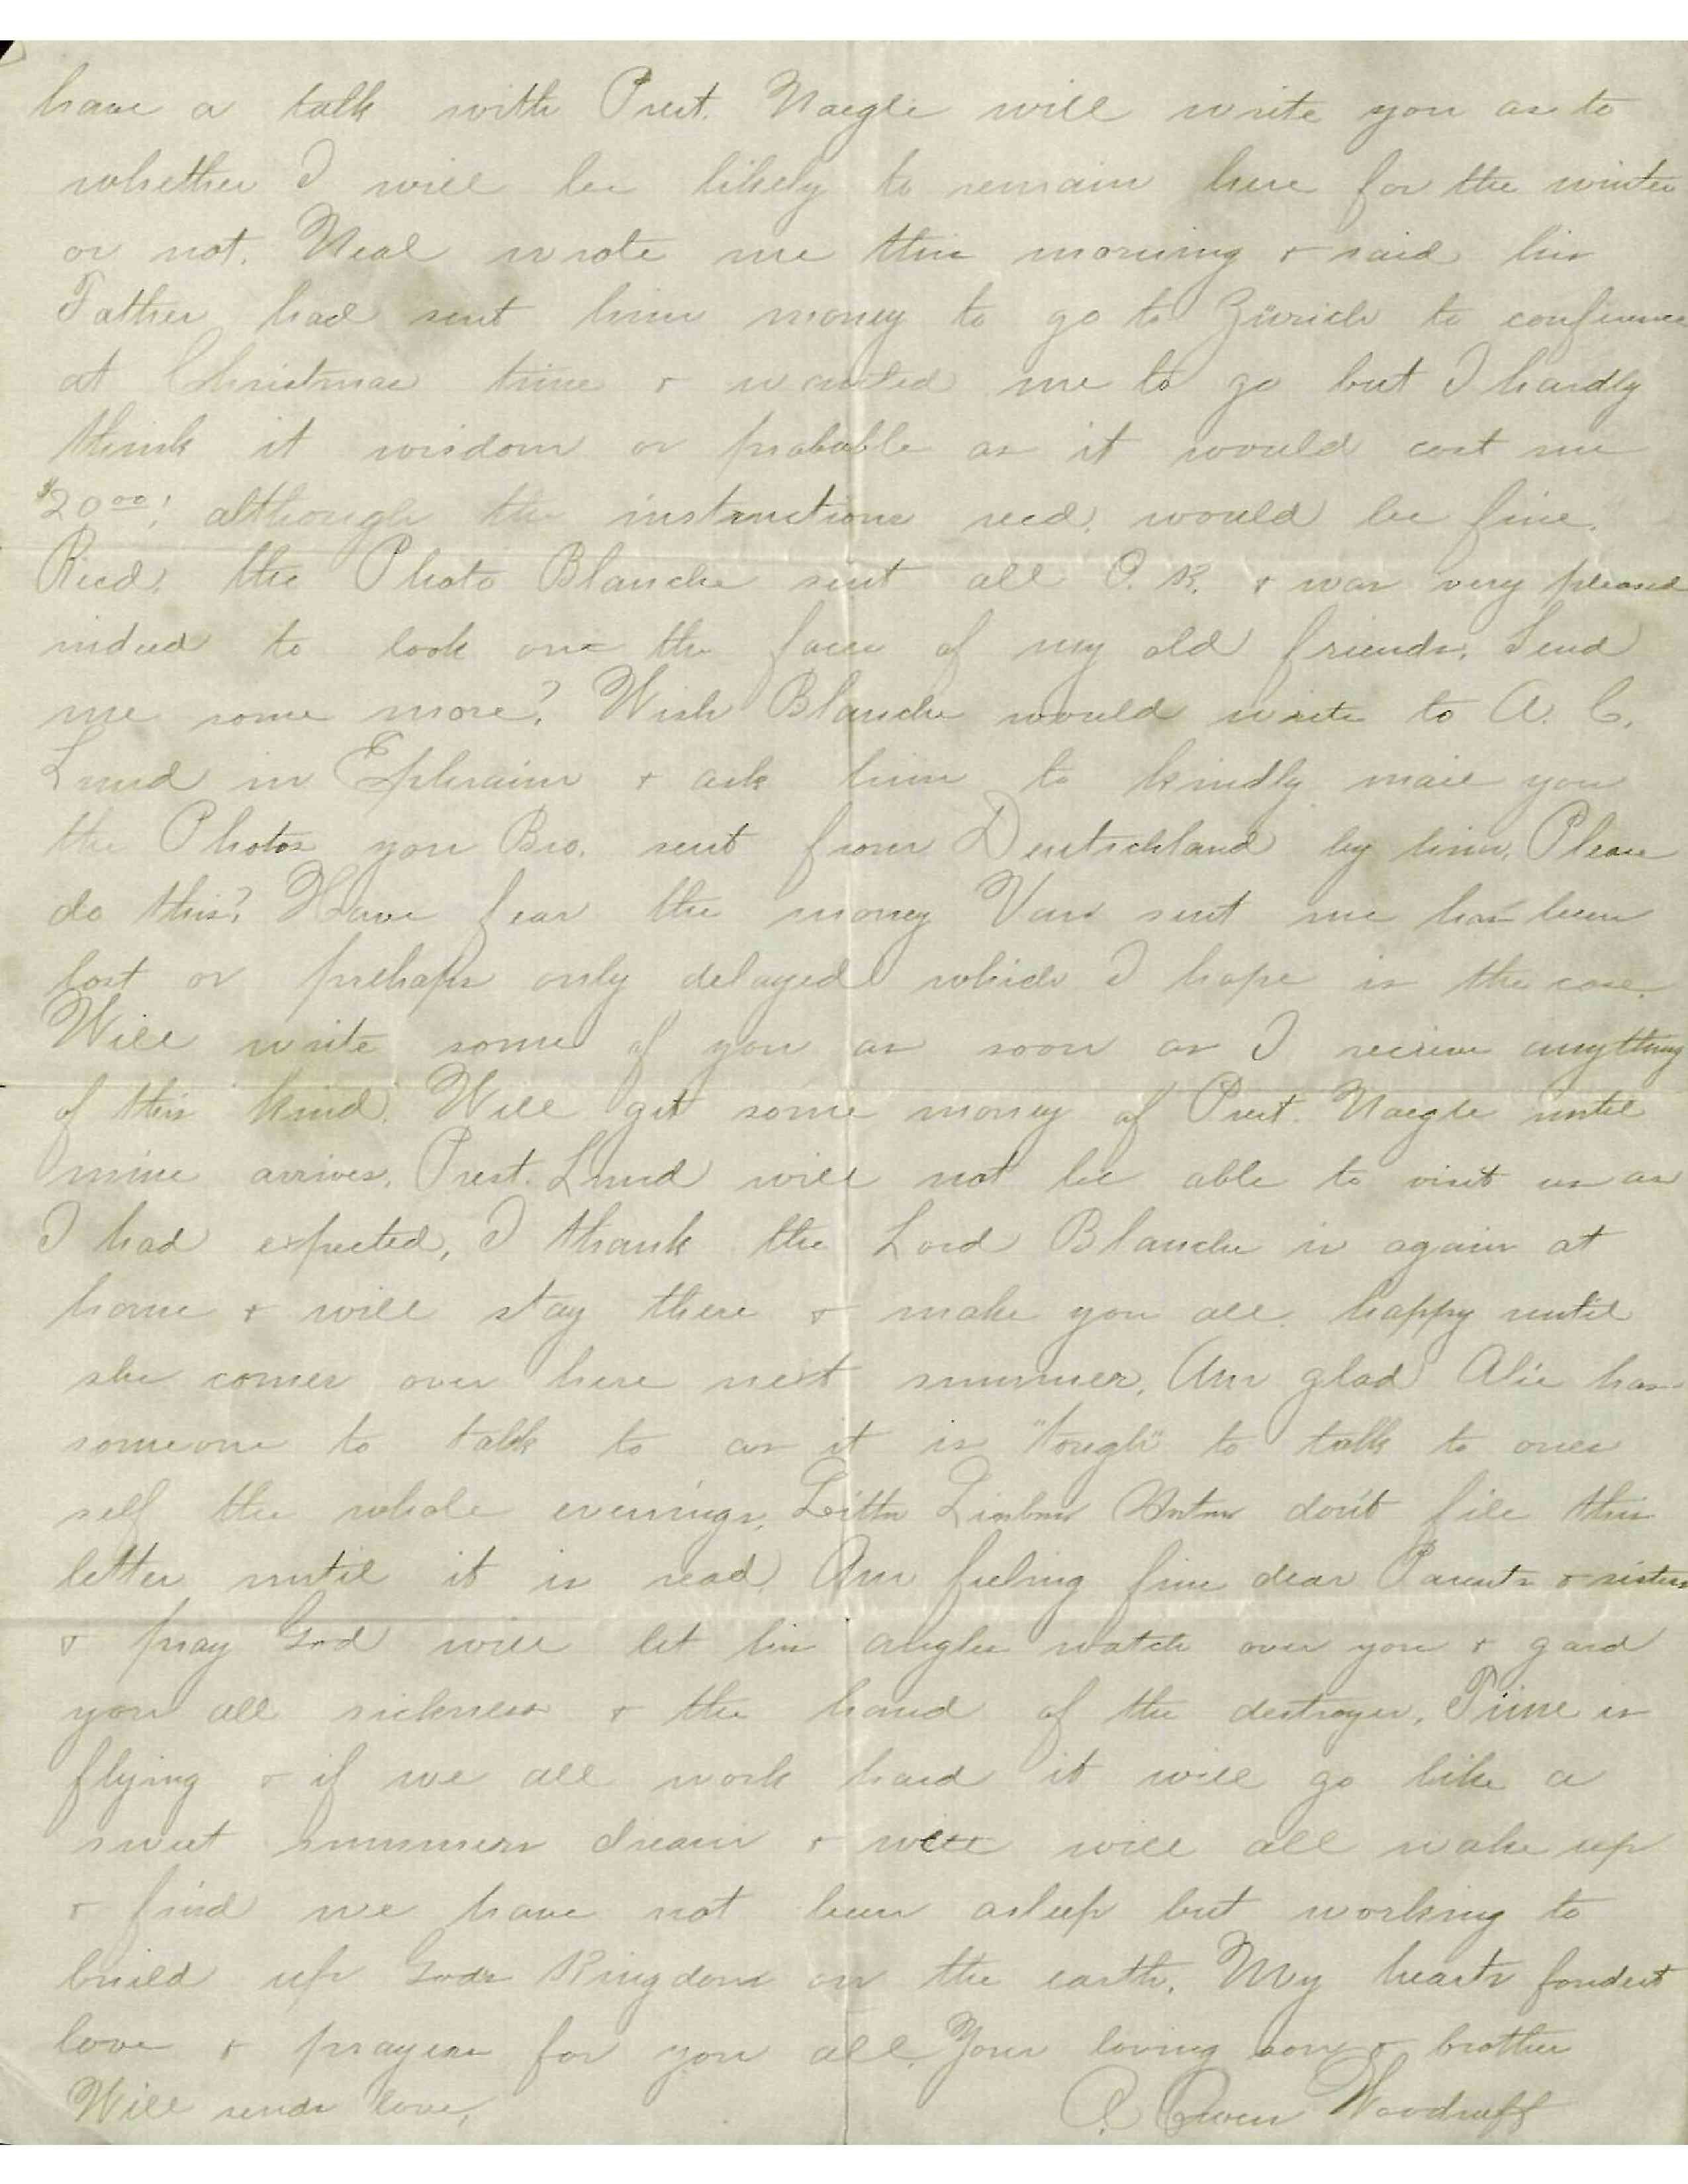 have a talk with Prest. Naegle will write you as to
whether I will be likely to remain here for the winter
or not. Neal wrote me this morning & said his
Father had sent him money to go to Zürich to conference
at Christmas time & wanted me to go but I hardly
think it wisdom or probable as it would cost me
$20.00! although the instructions recd. would be fine.
Recd. the Photo Blanche sent all O.K. & was very pleased
indeed to look on the faces of my old friends. Send
me some more? Wish Blanche would write to A. C.
Lund in Ephraim & ask him to kindly mail you
the Photos you Bro. sent from Deutschland by him. Please
do this? Have fear the money Van sent me has been
lost or prehaps only delayed which I hope is the case.
Will write some of you as soon as I recieve anything
of this kind. Will get some money of Prest. Naegle until
mine arrives. Prest. Lund will not be able to visit us as
I had expected, I thank the Lord Blanche is again at
home & will stay there & make you all happy until
she comes over here next summer. Am glad Alie has
someone to talk to as it is "tough" to talk to ones
self the whole evenings. don't file this
letter until it is read. Am feeling fine dear Parents & sisters
& pray God will let his angles watch over you & gard
you all sickness & the hand of the destroyer. Time is
flying & if we all work hard it will go like a
sweet summers dream & will all wake up
& find we have not been asleep but working to
build up Gods Kingdom on the earth. My hearts fondest
love & prayers for you all. Your loving son & brother
Will sends love, Owen Woodruff